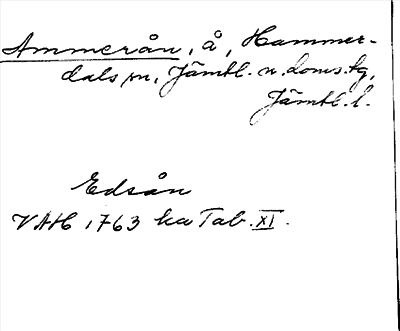 Ammerån, å, Hammer-
dals sn, Jämtl. n. doms.tg,
Jämtl. l.
Edsån
VAH 1763 ka Tab. XI.